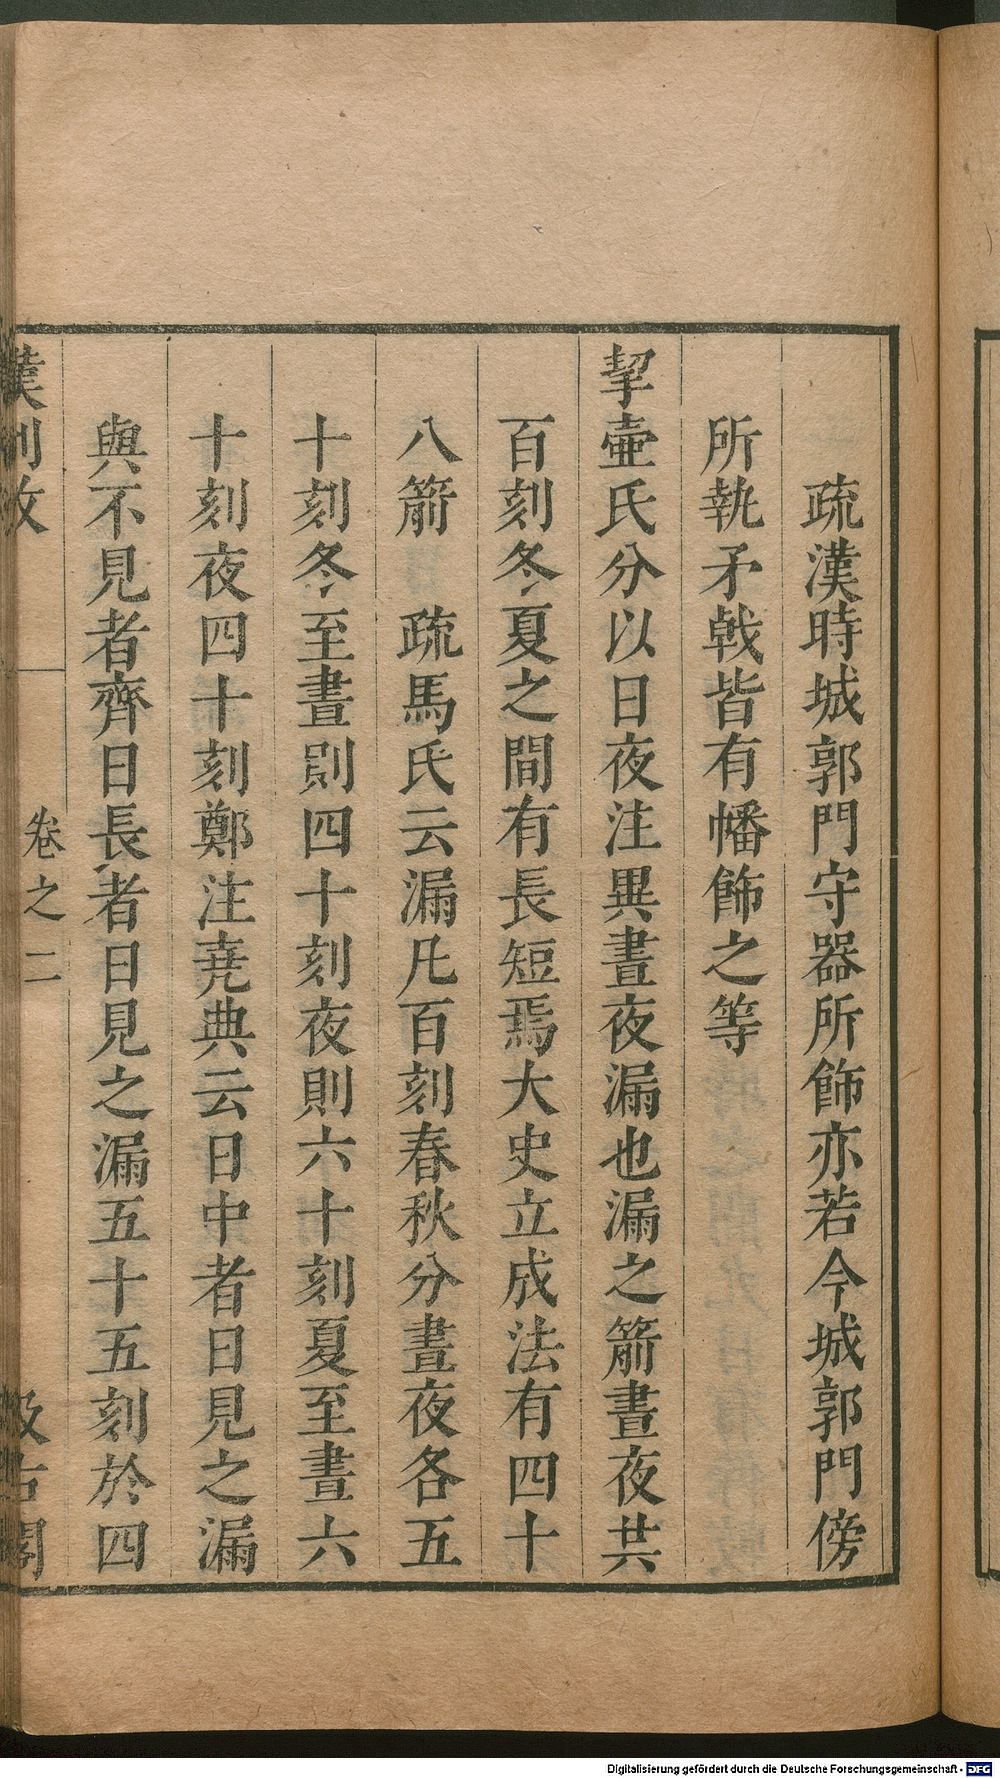 疏漢時城郭門守器所飾亦若今城郭門傍
所執矛戟皆有幡飾之等
挈壷氏分以日夜注異晝夜漏也漏之箭晝夜共
百刻冬夏之間有長短焉大史立成法有四十
八箭　疏馬氏云漏凡百刻春秋分晝夜各五
十刻冬至晝則四十刻夜則六十刻夏至晝六
十刻夜四十刻鄭注堯典云日中者日見之漏
與不見者齊日長者日見之漏五十五刻於四
漢制攷　卷之二　汲古閣
Digitalisierung gefördert durch die Deutsche Forschungsgemeinschaft - DFG